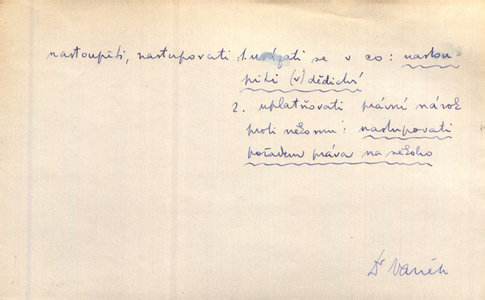 nastoupiti, nastupovati : 1. uvázati se v co : nastou-
piti (v) dědictví
2. uplatňovati právní nárok
proti někomu : nastupovati
pořadem práva na někoho
Dr Vaněk